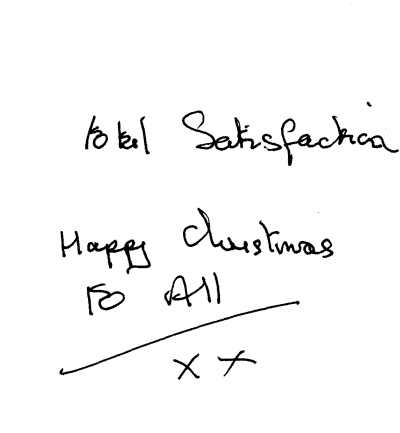 total Satisfaction
Happy Christmas
to All
x x